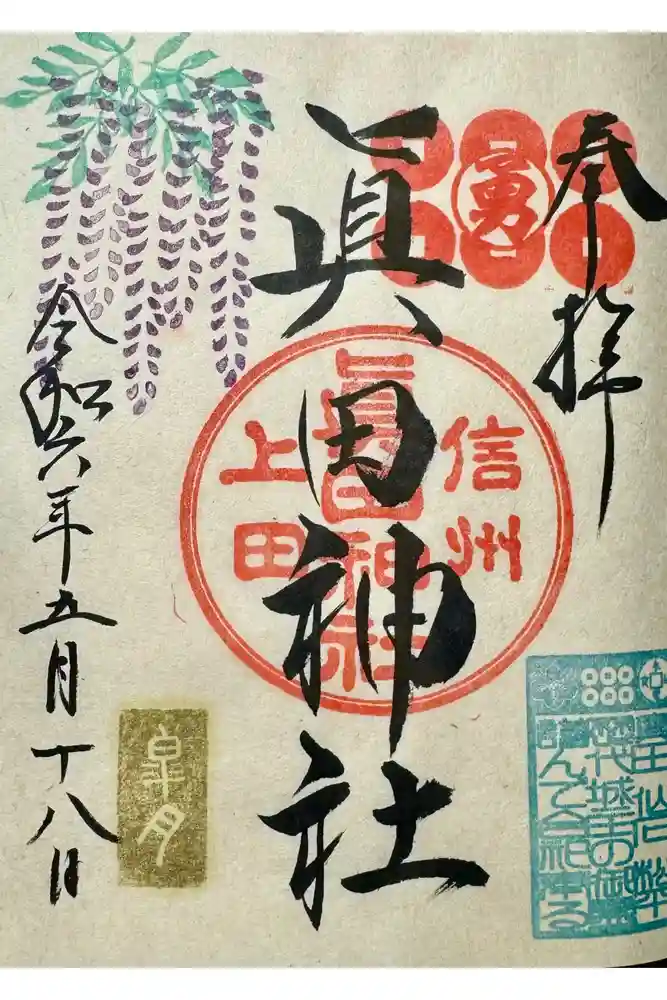 奉拝
勇
眞田神社
信州
眞田神社
上田
令和六年五月十八日
皐月